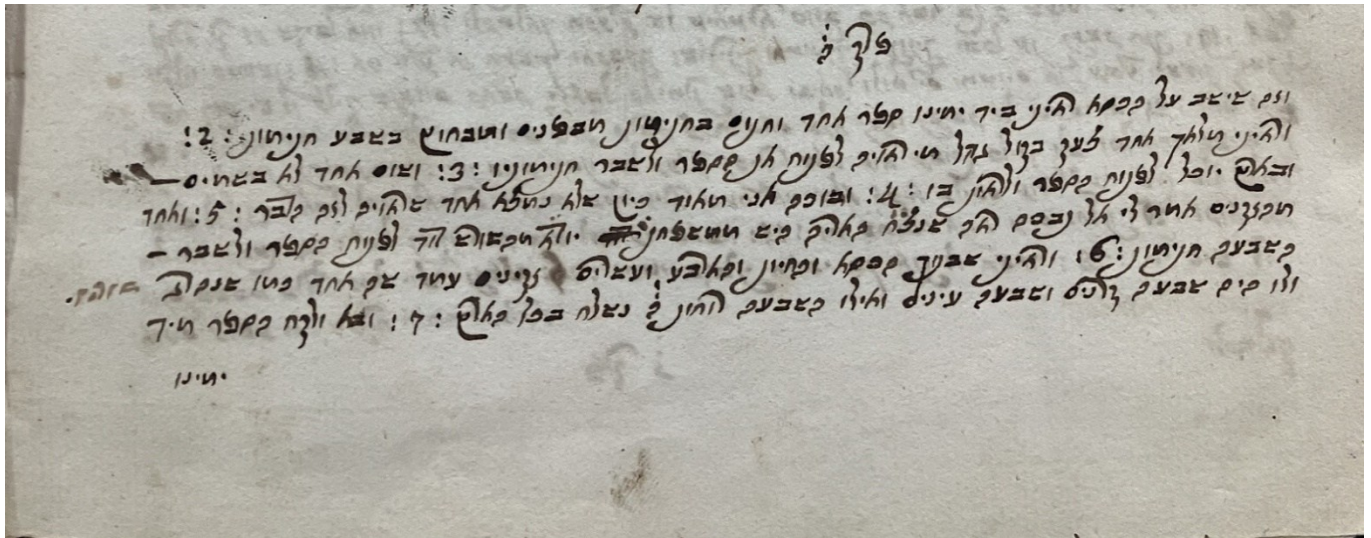 פרק ה
וזה שישב על הכסא ראיתי ביד ימינו ספר אחד וחתום בחתימות מבפנים ומבחוץ בשבע חתימות :2:
וראיתי מלאך אחד צעק בקול גדל מי ראוים לפתוח את הספר ולשבר חתימותיו :3: ושום אחד לא בשמים —
ובארץ יוכל לפתוח הספר ולראות בו :4: ובוכה אני מאוד כיון שלא נמצא אחד שראוים לזה הדבר :5: ואחד
מהזקנים אמר לי אל תבכה שנצח האריה היש ממשפחת לפתוח הספר ולשבר —
השבעה חתימות :6: וראיתי שבתוך הכסא והחיות והארבע ועשרים זקינים עומד שה אחד כמו
ולו היה שבעה קרנים ושבעה עינים ואילו השבעה רוחות ה נשלח בכל הארץ :7: ובא ולקח הספר מיד
ימינו